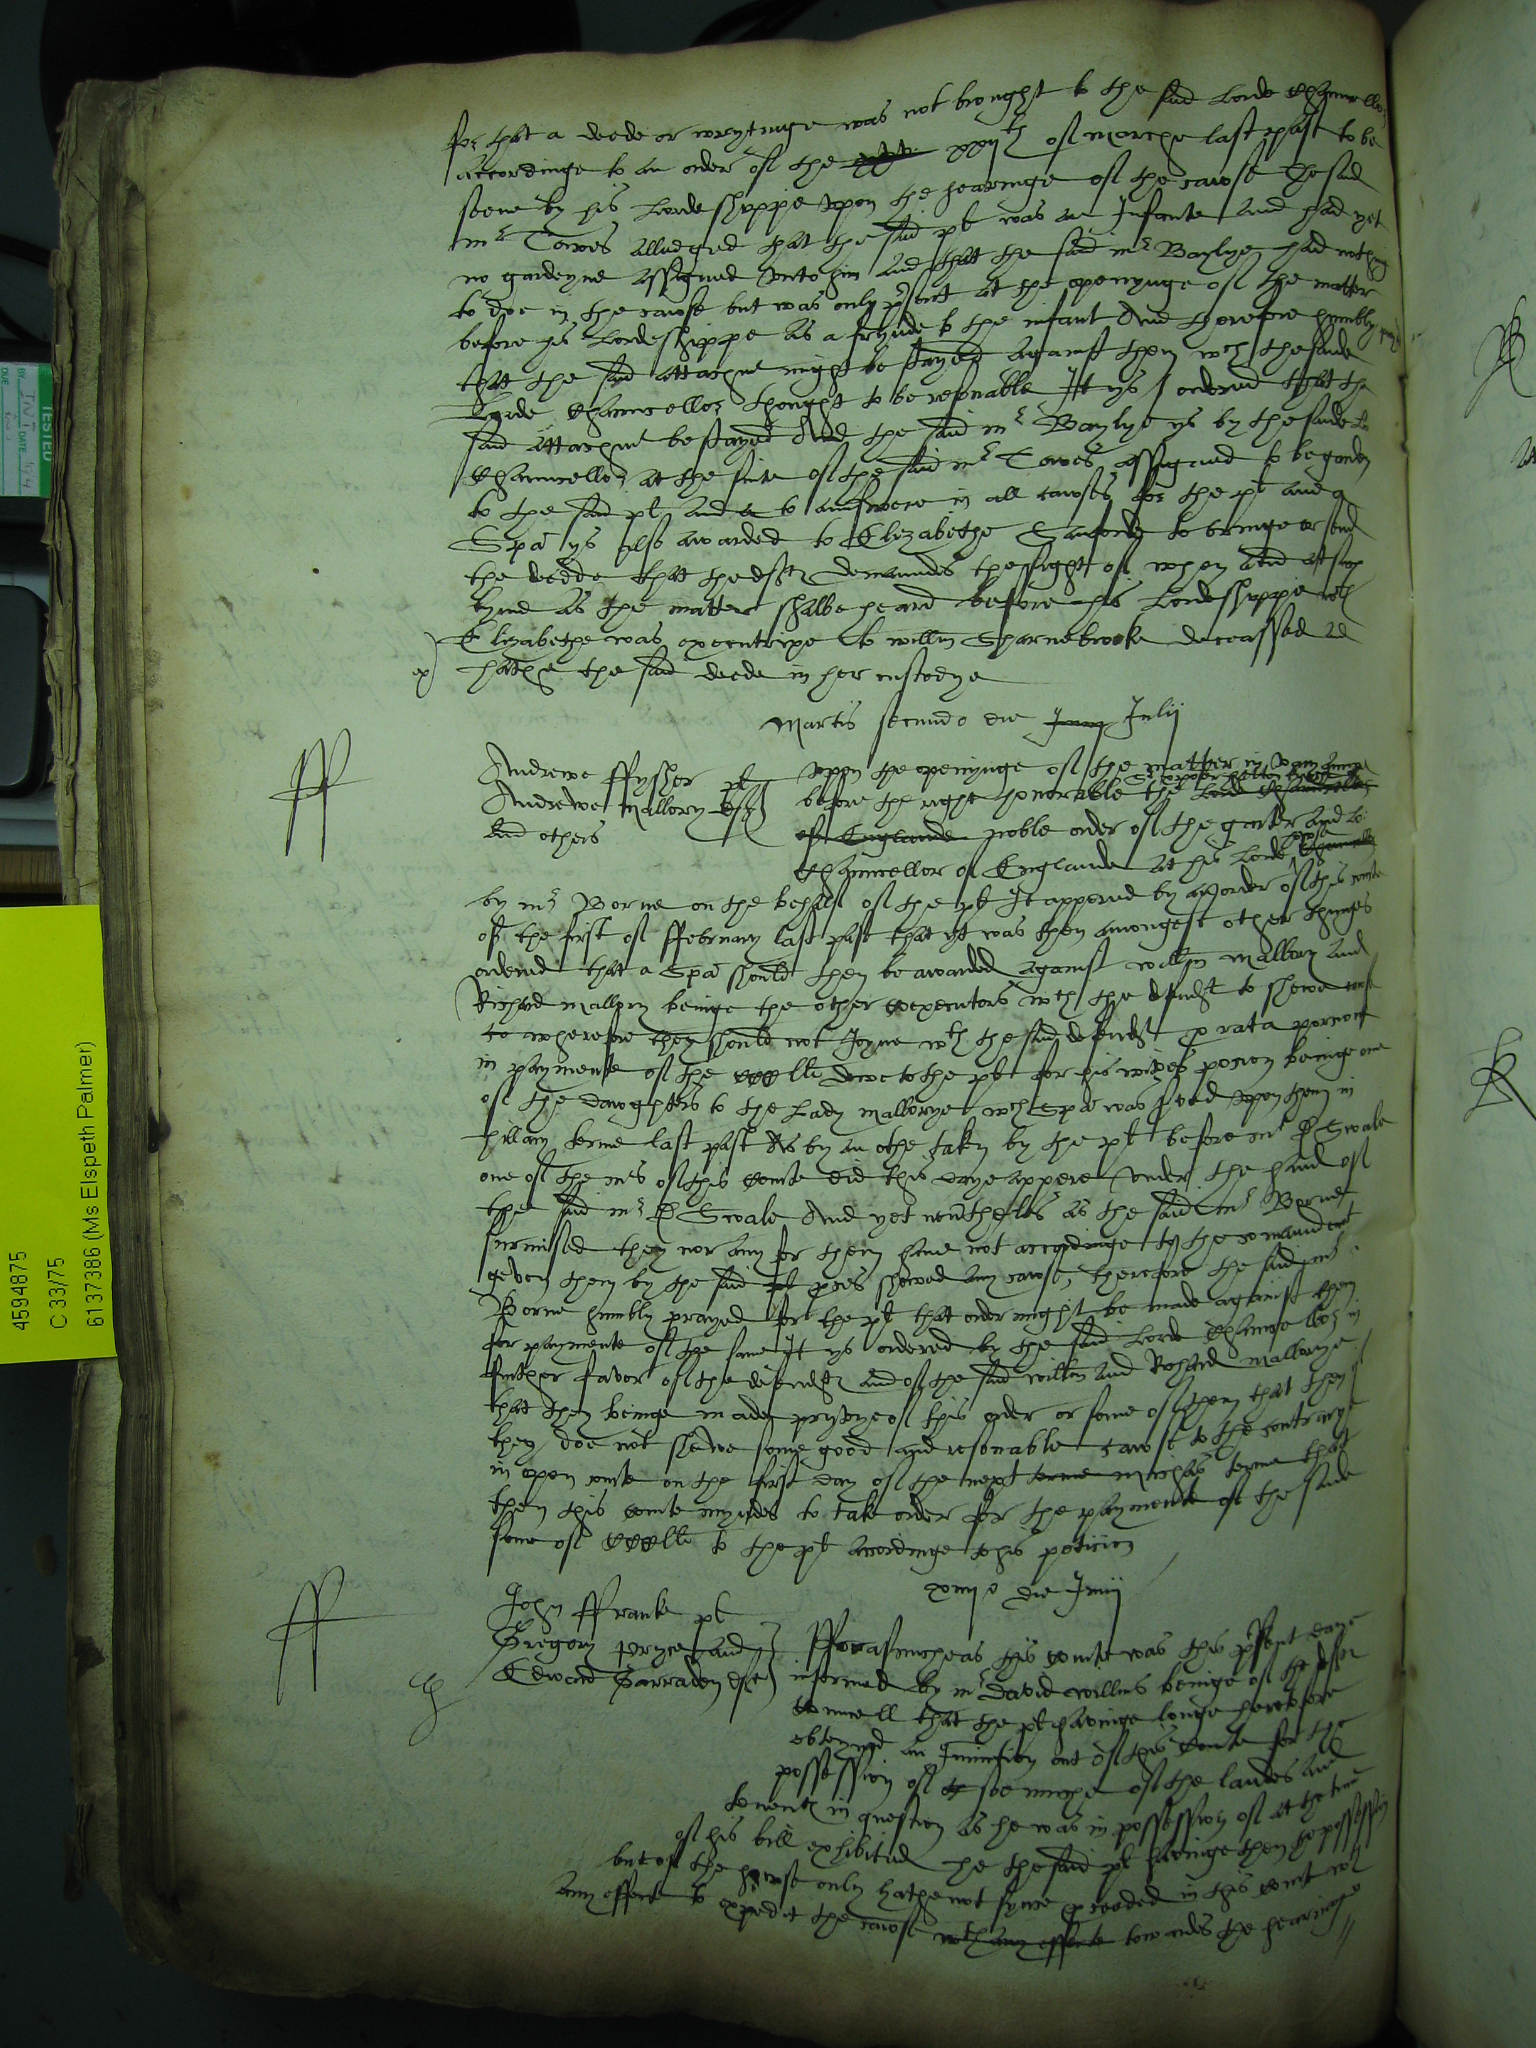 for that a deede or wrytinge was not brought to the said Lorde Chauncellor
Accordinge to an order of the xxijth of Marche last past to be
seene by his Lordeshyppe vpon the hearinge of the cawse The said
mr Cowes alledged that the said plt was an Infante And had yet
no gardeyne Assigned vnto him And that the said mr Baylye had nothing
to doe in the cawse but was only psent At the openynge of the matter
before his Lordeshippe As a frynde to the infant And therefore humbly prayed
that the said Attachmt might be stayed Against them wch the saide
Lorde Chauncellor thought to be resonable It ys ordered that the
said Attachmt be stayed And the said mr Baylye ys by the saide Lo
Chauncellor at the sute of the said mr Cowes Assigned to be garden
to the said plt And to Aunswere in all cawses for the plt And a
Spa ys Also Awarded to Elizabethe to bringe or send
the deede that the deft demaundes the sight of when And At such
tyme As the matter shalbe heard before his Lordeshyppe wch
Elizabethe was executrixe to willm Sharnebrooke deceassed And
ex
hathe the said deede in her custodye
Martis secundo die Junij Julij
ff
Andrewe ffyssher plt
Andrewe Mallory
And others deft
vpon the openynge of the matter in
before the right honorable the Lord Chauncellor
of Englande noble order of the garter And Lo:
Chauncellor of Englande At his Lords howse
by mr Borne on the behalf of the plt It appered by An order of this courte
of the first of ffebruary last past that yt was then Amongest other thinges
ordered that a Spa should then be Awarded Against willm Mallory And
Richard Mallory beinge the other coexecutors wth the defendt to shewe cause
wherefore they should not Joyne wth the said defendt p rata porcione
in paymente of the CCC li due to the plt for his wifes porcion beinge one
of the dawghters to the Lady Mallorye wch Spa was serued vpon them in
hillary terme last past As by An othe taken by the plt before mr D Swale
one of the mrs of this courte did this daye Appere vnder the hand of
the said mr D Swale And yet neuthelesse As the said mr Borne
surmised they nor Any for them haue not Accordinge to the comaundemt
geven them by the said plt proces shewed Any cawse, therefore the said mr
Borne humbly prayed for the plt that order might be made against them
for paymente of the same It ys ordered by the said Lorde Chauncellor in
further favor of the defendt and of the said willm And Richard Mallorye
that they beinge made pryvye of this order or some of them that they
they doe not shewe some good And resonable cawse to the contrarye
in open courte on the first day of the next terme Michas terme that
then this courte myndes to take order for the paymente of the saide
some of CCC li to the plt Accordinge to his peticion
xiiijo die Junij
ff
John ffranke plt
Gregory Pryce And
Edward Harraden deft
fforasmuche as this courte was this psent daye
informed by mr david willms beinge of the deft
Councell that the plt havinge longe heretofore
obteyned An Iniunction out of this Courte for the
possession of soe muche of the landes And
tenemtes in question As he was in possession of At the tyme
of his bill exhibited he the said plt havinge then the possession
but of the howse only hathe not synce proceded in this courte wth
Any effecte to expedit the cawse wth any effecte towardes the hearinge
TESTED
BY
DATE
DUE
4594875
C 33/75
6137386 (Ms Elspeth Palmer)